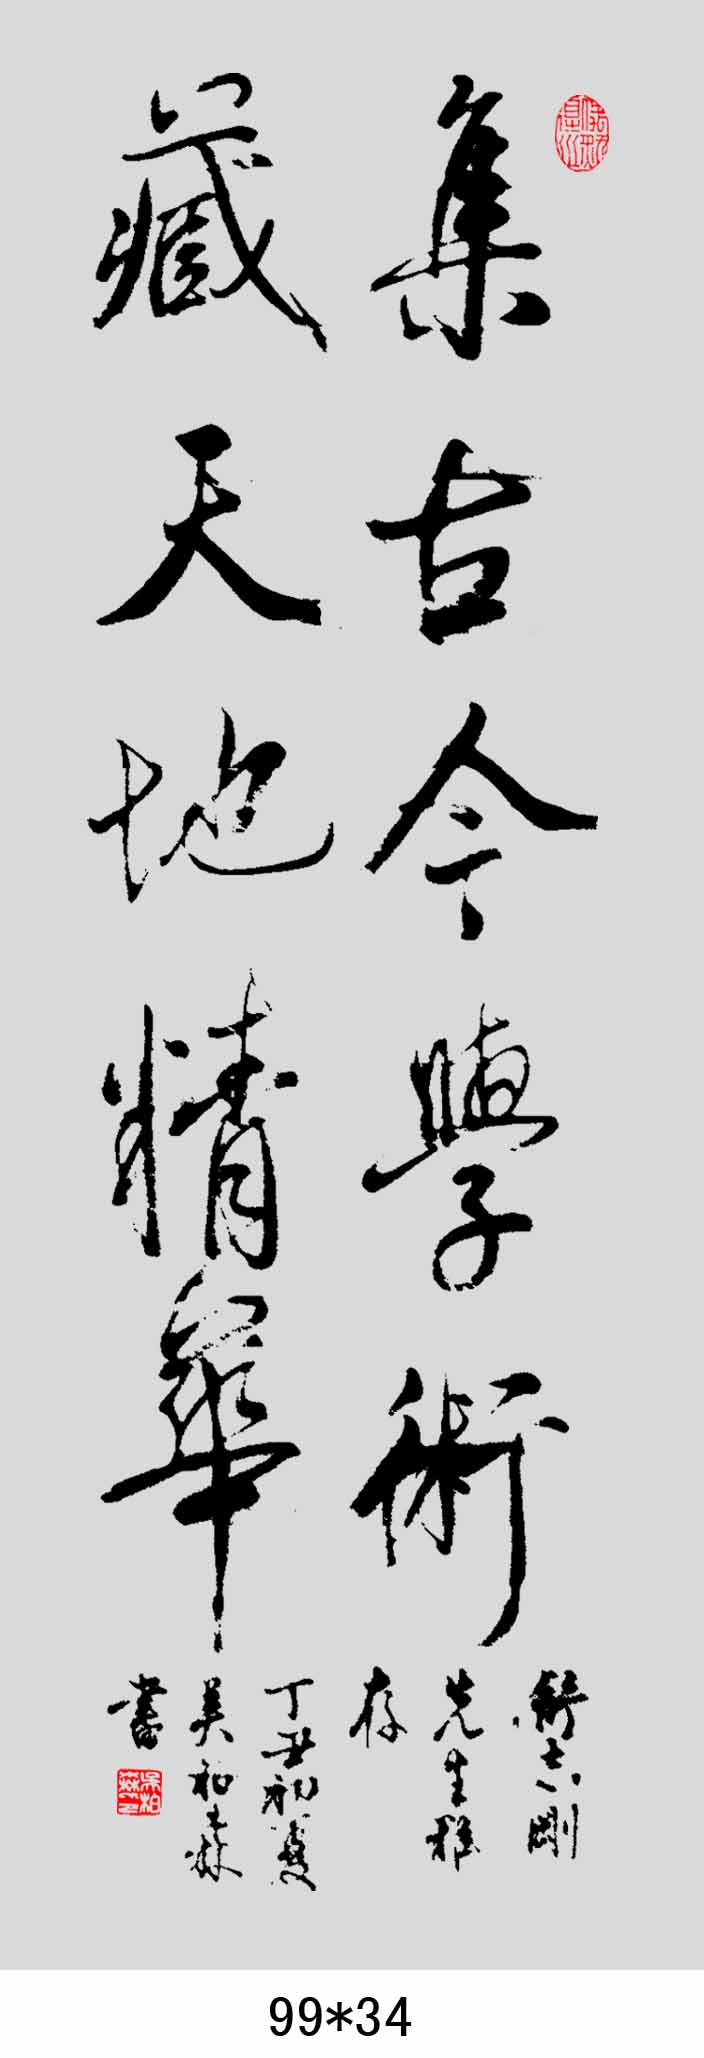 集古今學術
藏天地精華
舒志剛
先生雅
存
丁丑初夏
吴柏森
書
99*34